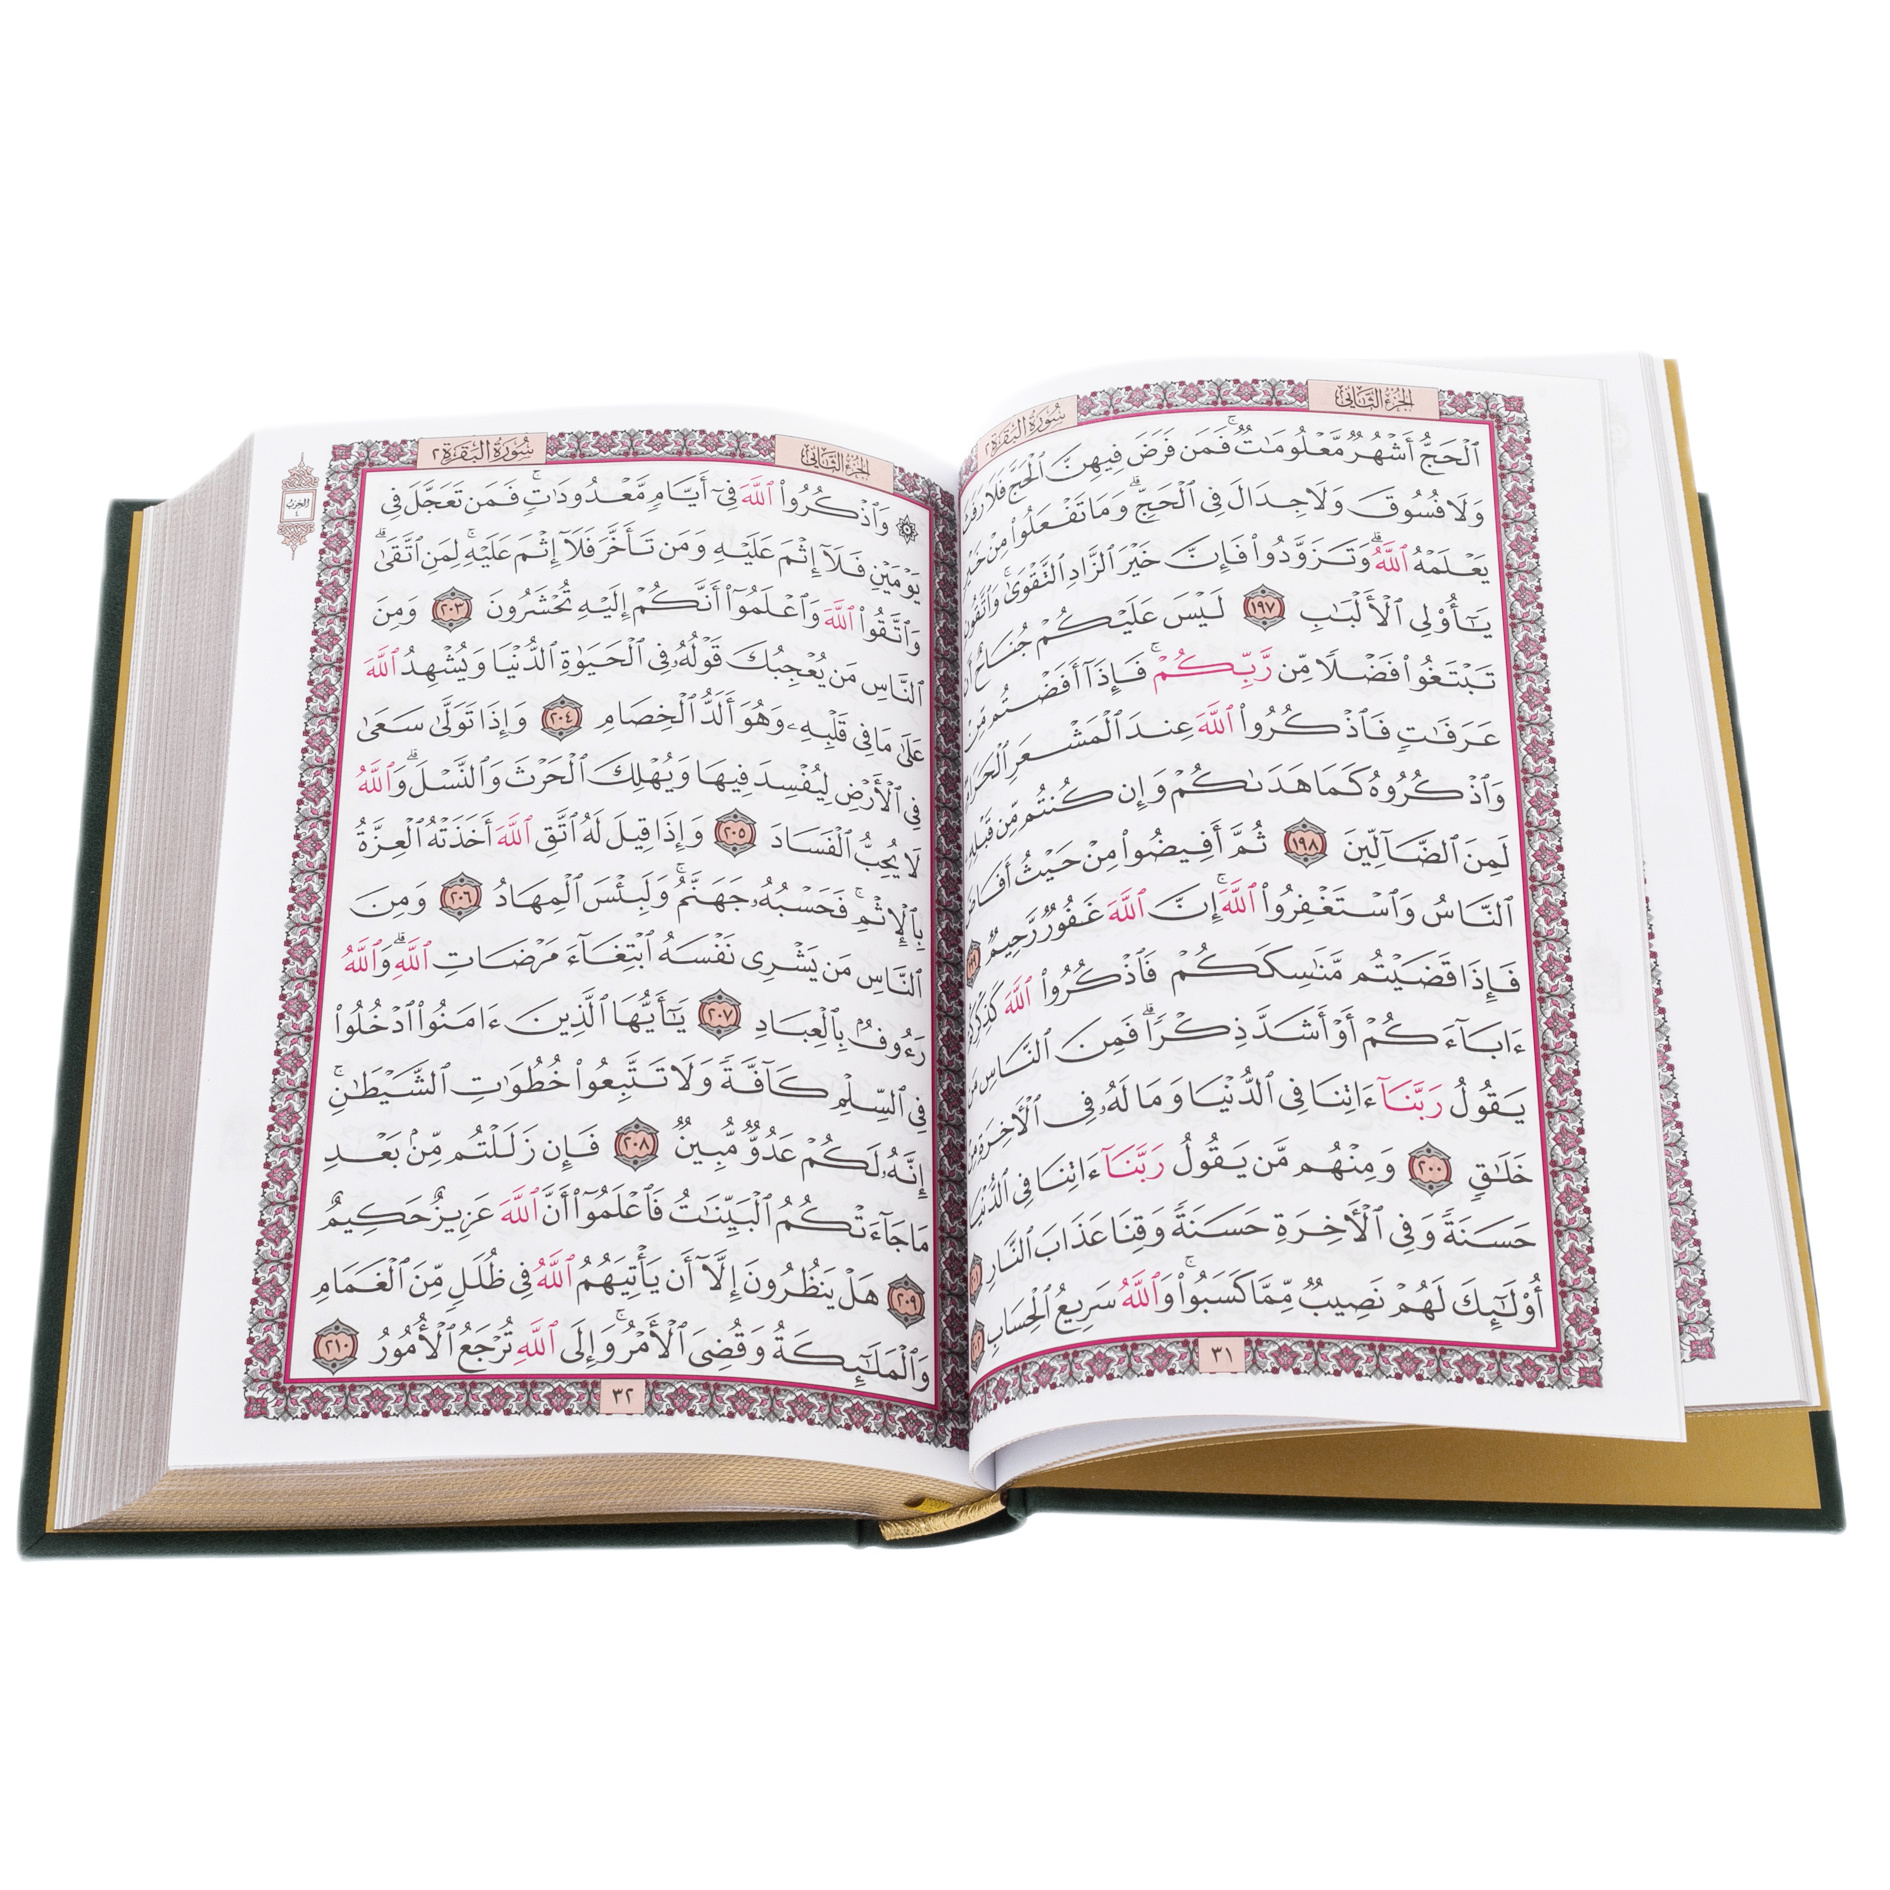 الجزء الثاني
سورة البقرة ٢
ٱلْحَجُّ أَشْهُرٌ مَّعْلُومَٰتٌ ۚ فَمَن فَرَضَ فِيهِنَّ ٱلْحَجَّ فَلَا رَفَثَ
وَلَا فُسُوقَ وَلَا جِدَالَ فِى ٱلْحَجِّ ۗ وَمَا تَفْعَلُوا۟ مِنْ خَيْرٍ
يَعْلَمْهُ ٱللَّهُ ۗ وَتَزَوَّدُوا۟ فَإِنَّ خَيْرَ ٱلزَّادِ ٱلتَّقْوَىٰ ۚ وَٱتَّقُونِ
يَٰٓأُو۟لِى ٱلْأَلْبَٰبِ ١٩٧ لَيْسَ عَلَيْكُمْ جُنَاحٌ أَن
تَبْتَغُوا۟ فَضْلًا مِّن رَّبِّكُمْ ۚ فَإِذَآ أَفَضْتُم مِّنْ
عَرَفَٰتٍ فَٱذْكُرُوا۟ ٱللَّهَ عِندَ ٱلْمَشْعَرِ ٱلْحَرَامِ
وَٱذْكُرُوهُ كَمَا هَدَىٰكُمْ وَإِن كُنتُم مِّن قَبْلِهِۦ
لَمِنَ ٱلضَّآلِّينَ ١٩٨ ثُمَّ أَفِيضُوا۟ مِنْ حَيْثُ أَفَاضَ
ٱلنَّاسُ وَٱسْتَغْفِرُوا۟ ٱللَّهَ ۚ إِنَّ ٱللَّهَ غَفُورٌ رَّحِيمٌ ١٩٩
فَإِذَا قَضَيْتُم مَّنَٰسِكَكُمْ فَٱذْكُرُوا۟ ٱللَّهَ كَذِكْرِكُمْ
ءَابَآءَكُمْ أَوْ أَشَدَّ ذِكْرًا ۗ فَمِنَ ٱلنَّاسِ مَن
يَقُولُ رَبَّنَآ ءَاتِنَا فِى ٱلدُّنْيَا وَمَا لَهُۥ فِى ٱلْأَخِرَةِ مِنْ
خَلَٰقٍ ٢٠٠ وَمِنْهُم مَّن يَقُولُ رَبَّنَآ ءَاتِنَا فِى ٱلدُّنْيَا
حَسَنَةً وَفِى ٱلْأَخِرَةِ حَسَنَةً وَقِنَا عَذَابَ ٱلنَّارِ ٢٠١
أُو۟لَٰٓئِكَ لَهُمْ نَصِيبٌ مِّمَّا كَسَبُوا۟ ۚ وَٱللَّهُ سَرِيعُ ٱلْحِسَابِ ٢٠٢
٣١
الجزء الثاني
سورة البقرة ٢
الحزب ٤
۞ وَٱذْكُرُوا۟ ٱللَّهَ فِىٓ أَيَّامٍ مَّعْدُودَٰتٍ ۚ فَمَن تَعَجَّلَ فِى
يَوْمَيْنِ فَلَآ إِثْمَ عَلَيْهِ وَمَن تَأَخَّرَ فَلَآ إِثْمَ عَلَيْهِ ۚ لِمَنِ ٱتَّقَىٰ ۗ
وَٱتَّقُوا۟ ٱللَّهَ وَٱعْلَمُوٓا۟ أَنَّكُمْ إِلَيْهِ تُحْشَرُونَ ٢٠٣ وَمِنَ
ٱلنَّاسِ مَن يُعْجِبُكَ قَوْلُهُۥ فِى ٱلْحَيَوٰةِ ٱلدُّنْيَا وَيُشْهِدُ ٱللَّهَ
عَلَىٰ مَا فِى قَلْبِهِۦ وَهُوَ أَلَدُّ ٱلْخِصَامِ ٢٠٤ وَإِذَا تَوَلَّىٰ سَعَىٰ
فِى ٱلْأَرْضِ لِيُفْسِدَ فِيهَا وَيُهْلِكَ ٱلْحَرْثَ وَٱلنَّسْلَ ۗ وَٱللَّهُ
لَا يُحِبُّ ٱلْفَسَادَ ٢٠٥ وَإِذَا قِيلَ لَهُ ٱتَّقِ ٱللَّهَ أَخَذَتْهُ ٱلْعِزَّةُ
بِٱلْإِثْمِ ۚ فَحَسْبُهُۥ جَهَنَّمُ ۚ وَلَبِئْسَ ٱلْمِهَادُ ٢٠٦ وَمِنَ
ٱلنَّاسِ مَن يَشْرِى نَفْسَهُ ٱبْتِغَآءَ مَرْضَاتِ ٱللَّهِ ۗ وَٱللَّهُ
رَءُوفٌۢ بِٱلْعِبَادِ ٢٠٧ يَٰٓأَيُّهَا ٱلَّذِينَ ءَامَنُوا۟ ٱدْخُلُوا۟
فِى ٱلسِّلْمِ كَآفَّةً وَلَا تَتَّبِعُوا۟ خُطُوَٰتِ ٱلشَّيْطَٰنِ ۚ
إِنَّهُۥ لَكُمْ عَدُوٌّ مُّبِينٌ ٢٠٨ فَإِن زَلَلْتُم مِّنۢ بَعْدِ
مَا جَآءَتْكُمُ ٱلْبَيِّنَٰتُ فَٱعْلَمُوٓا۟ أَنَّ ٱللَّهَ عَزِيزٌ حَكِيمٌ
٢٠٩ هَلْ يَنظُرُونَ إِلَّآ أَن يَأْتِيَهُمُ ٱللَّهُ فِى ظُلَلٍ مِّنَ ٱلْغَمَامِ
وَٱلْمَلَٰٓئِكَةُ وَقُضِىَ ٱلْأَمْرُ ۚ وَإِلَى ٱللَّهِ تُرْجَعُ ٱلْأُمُورُ ٢١٠
٣٢